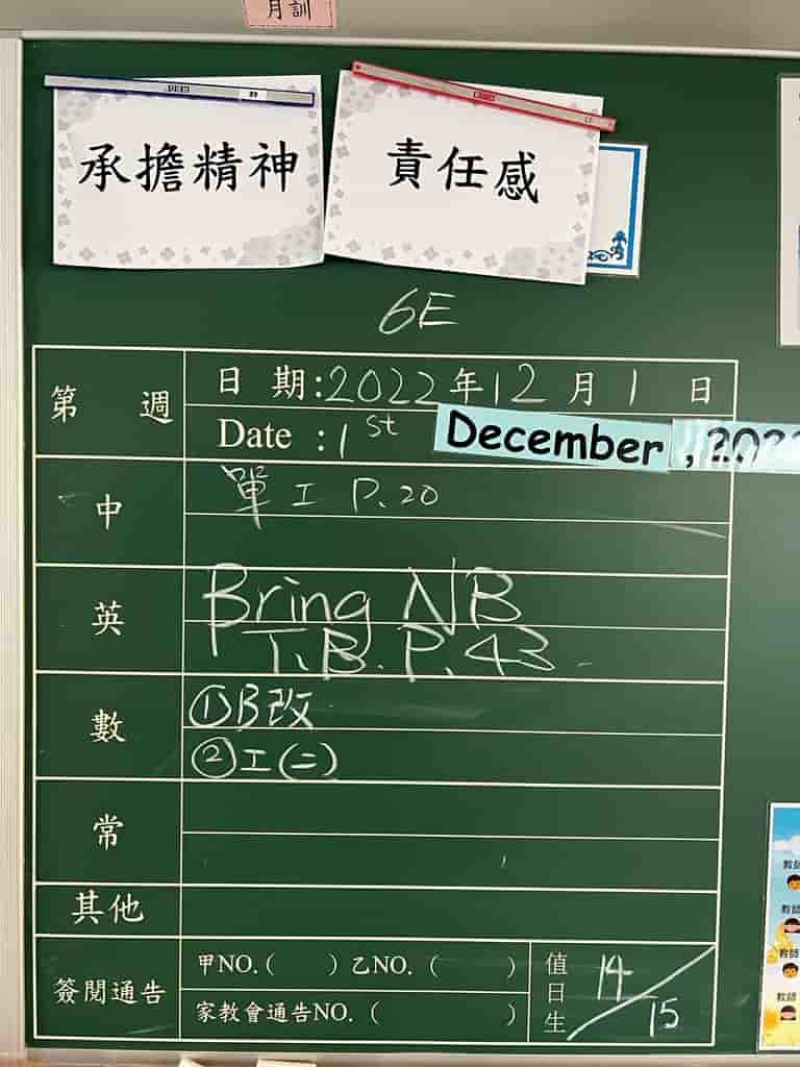 月訓
承擔精神
責任感
6E
第 週
日 期:2022年12月1日
Date :1st December, 202
中
單工 P.20
英
Bring NB
T.B. P.43
數
①B改
②工(二)
常
其他
簽閱通告
甲NO.( ) 乙NO. ( )
家教會通告NO. ( )
值日生
14/15
教師
教師
教師
教師